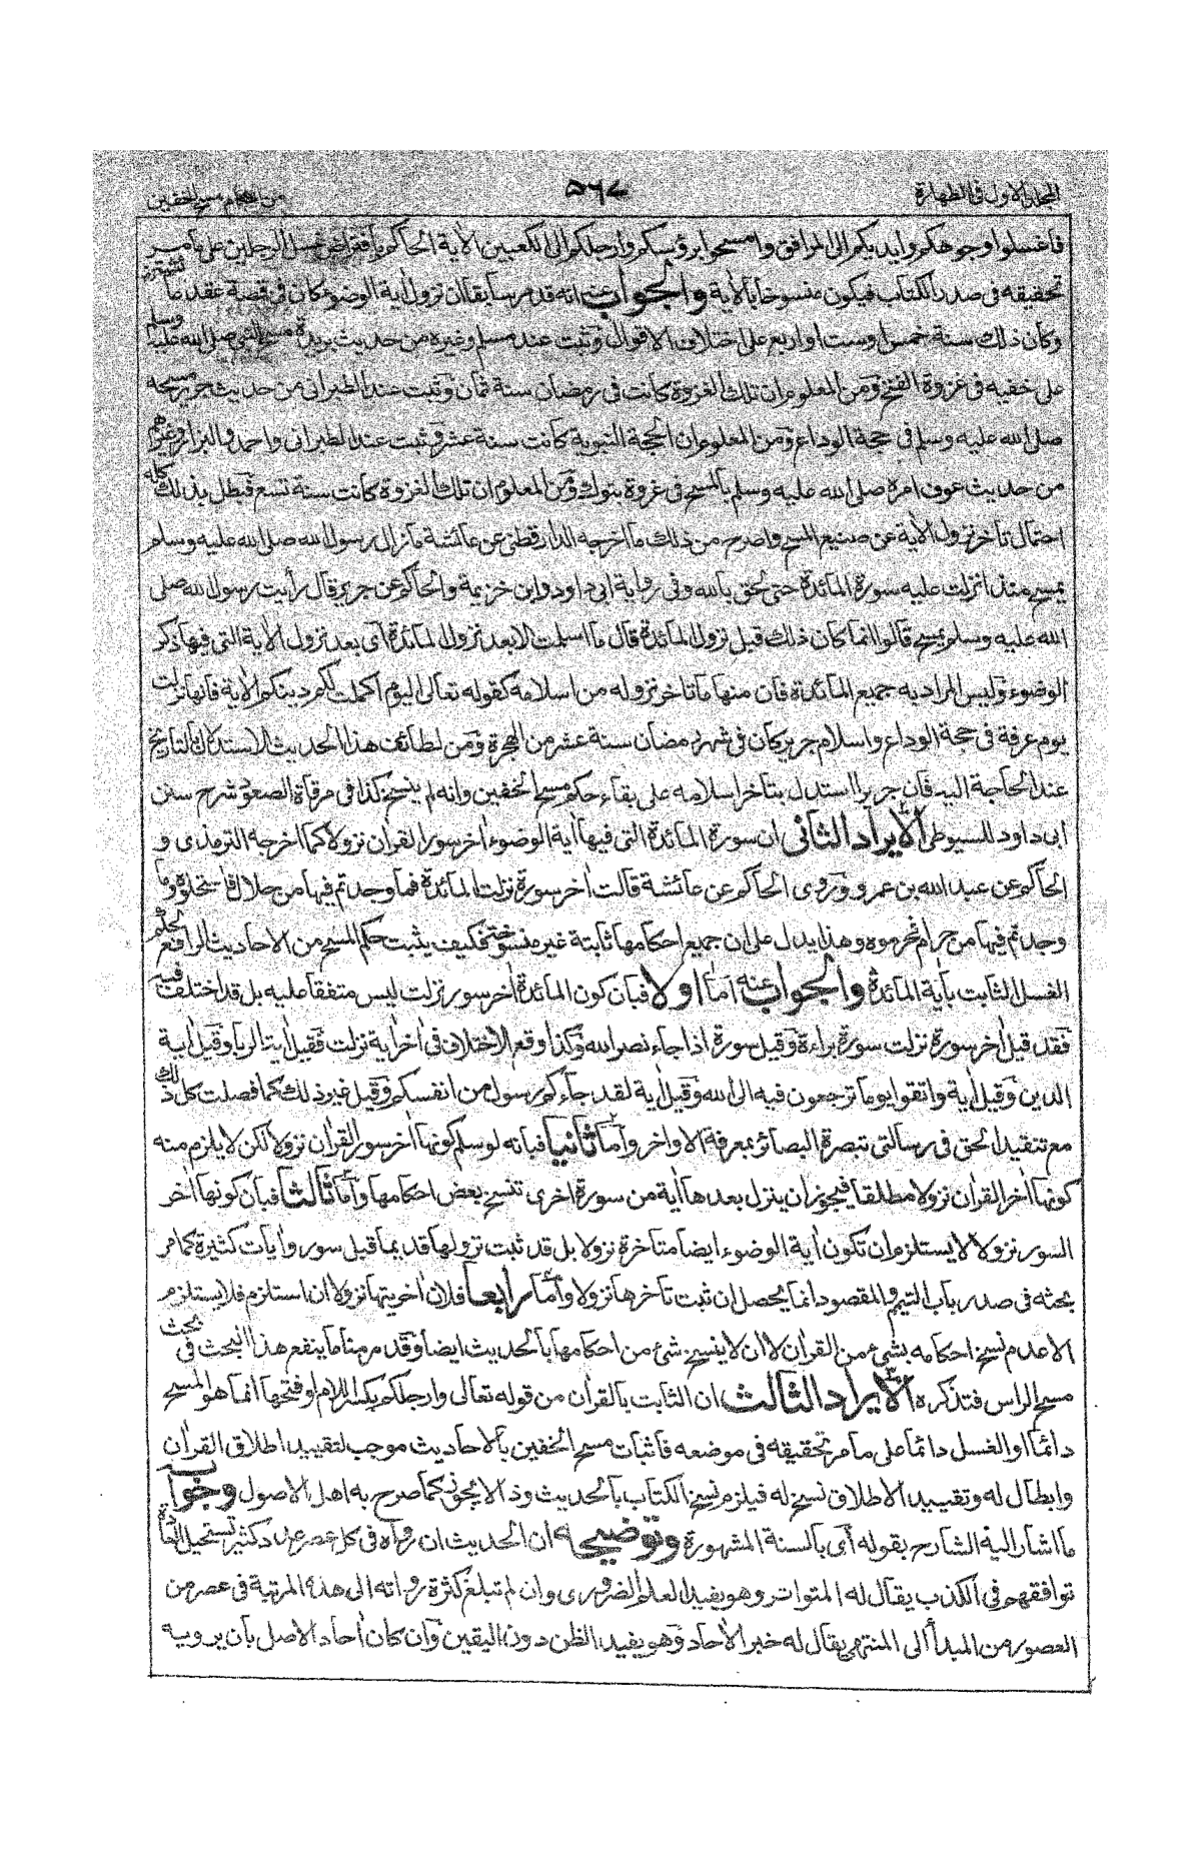 المجلد الاول فى الطهارة ۵۶۷ من احكام مسح الخفين
فاغسلوا وجوهكم وايديكم الى المرافق وامسحوا برؤسكم وارجلكم الى الكعبين الأية الحاكم بافتراض غسل الرجلين على ما مر
تحقيقه فى صدر الكتاب فيكون منسوخا بالأية والجواب عنه انه قد مر سابقا ان نزول أية الوضوء كان فى قصة عقد عائشة
وكان ذلك سنة خمس او ست او اربع على اختلاف الاقوال وثبت عند مسلم وغيره من حديث بريدة مسح النبى صلى الله عليه وسلم
على خفيه فى غزوة الفتح ومن المعلوم ان تلك الغزوة كانت فى رمضان سنة ثمان وثبت عند الطبرانى من حديث جرير مسحه
صلى الله عليه وسلم فى حجة الوداع ومن المعلوم ان الحجة النبوية كانت سنة عشر وثبت عند الطبرانى واحمد والبزار وغيرهم
من حديث عوف امره صلى الله عليه وسلم بالمسح فى غزوة تبوك ومن المعلوم ان تلك الغزوة كانت سنة تسع فبطل بذلك كله
احتمال تأخر نزول الأية عن صنيع المسح واصرح من ذلك ما اخرجه الدارقطنى عن عائشة ما زال رسول الله صلى الله عليه وسلم
يمسح منذ انزلت عليه سورة المائدة حتى لحق بالله وفى رواية ابى داود وابن خزيمة والحاكم عن جرير قال رأيت رسول الله صلى
الله عليه وسلم يمسح قالوا انما كان ذلك قبل نزول المائدة قال ما اسلمت الا بعد نزول المائدة أى بعد نزول الأية التى فيها ذكر
الوضوء وليس المراد به جميع المائدة فان منها ما تاخر نزوله من اسلامه كقوله تعالى اليوم اكملت لكم دينكم الأية فانها نزلت
يوم عرفة فى حجة الوداع واسلام جرير كان فى شهر رمضان سنة عشر من الهجرة ومن لطائف هذا الحديث الاستدلال بالتاريخ
عند الحاجة اليه فان جريرا استدل بتاخر اسلامه على بقاء حكم مسح الخفين وانه لم ينسخ كذا فى مرقاة الصعود شرح سنن
ابى داود للسيوطى الايراد الثانى ان سورة المائدة التى فيها أية الوضوء أخر سور القرأن نزولا كما اخرجه الترمذى و
الحاكم عن عبد الله بن عمرو وروى الحاكم عن عائشة قالت أخر سورة نزلت المائدة فما وجدتم فيها من حلال فاستحلوه وما
وجدتم فيها من حرام فحرموه وهذا يدل على ان جميع احكامها ثابتة غير منسوخة فكيف يثبت حكم المسح من الاحاديث الرافع لحكم
الغسل الثابت بأية المائدة والجواب عنه اما اولا فبان كون المائدة أخر سور نزلت ليس متفقا عليه بل قد اختلف فيه
فقد قيل أخر سورة نزلت سورة براءة وقيل سورة اذا جاء نصر الله وكذا وقع الاختلاف فى أخر أية نزلت فقيل أية الربا وقيل أية
الدين وقيل أية واتقوا يوما ترجعون فيه الى الله وقيل أية لقد جاءكم رسول من انفسكم وقيل غير ذلك كما فصلت كل ذلك
مع تنقيد الحق فى رسالتى تبصرة البصائر بمعرفة الاواخر واما ثانيا فبانه لو سلم كونها أخر سور القرأن نزولا لكن لا يلزم منه
كونها أخر القرأن نزولا مطلقا فيجوز ان ينزل بعدها أية من سورة اخرى تنسخ بعض احكامها واما ثالثا فبان كونها أخر
السور نزولا لا يستلزم ان تكون أية الوضوء ايضا متاخرة نزولا بل قد ثبت نزولها قديما قبل سور وأيات كثيرة كما مر
بحثه فى صدر باب التيمم والمقصود انما يحصل ان ثبت تأخرها نزولا واما رابعا فلان أخريتها نزولا ان استلزم فلا يستلزم
الا عدم نسخ احكامه بشئ من القرأن لا ان لا ينسخ شئ من احكامها بالحديث ايضا وقد مر منا ما ينفع هذا البحث فى بحث
مسح الراس فتذكره الايراد الثالث ان الثابت بالقرأن من قوله تعالى وارجلكم بكسر اللام او فتحها انما هو المسح
دائما او الغسل دائما على ما مر تحقيقه فى موضعه فاثبات مسح الخفين بالاحاديث موجب لتقييد اطلاق القرأن
وابطال له وتقييد الاطلاق نسخ له فيلزم نسخ الكتاب بالحديث وذا لا يجوز كما صرح به اهل الاصول وجوابه
ما اشار اليه الشارح بقوله أى بالسنة المشهورة وتوضيحه ان الحديث ان رواه فى كل عصر عدد كثير تستحيل العادة
توافقهم فى الكذب يقال له المتواتر وهو يفيد العلم الضرورى وان لم تبلغ كثرة رواته الى هذه المرتبة فى عصر من
العصور من المبدأ الى المنتهى يقال له خبر الأحاد وهو يفيد الظن دون اليقين وان كان أحاد الاصل بان يرويه